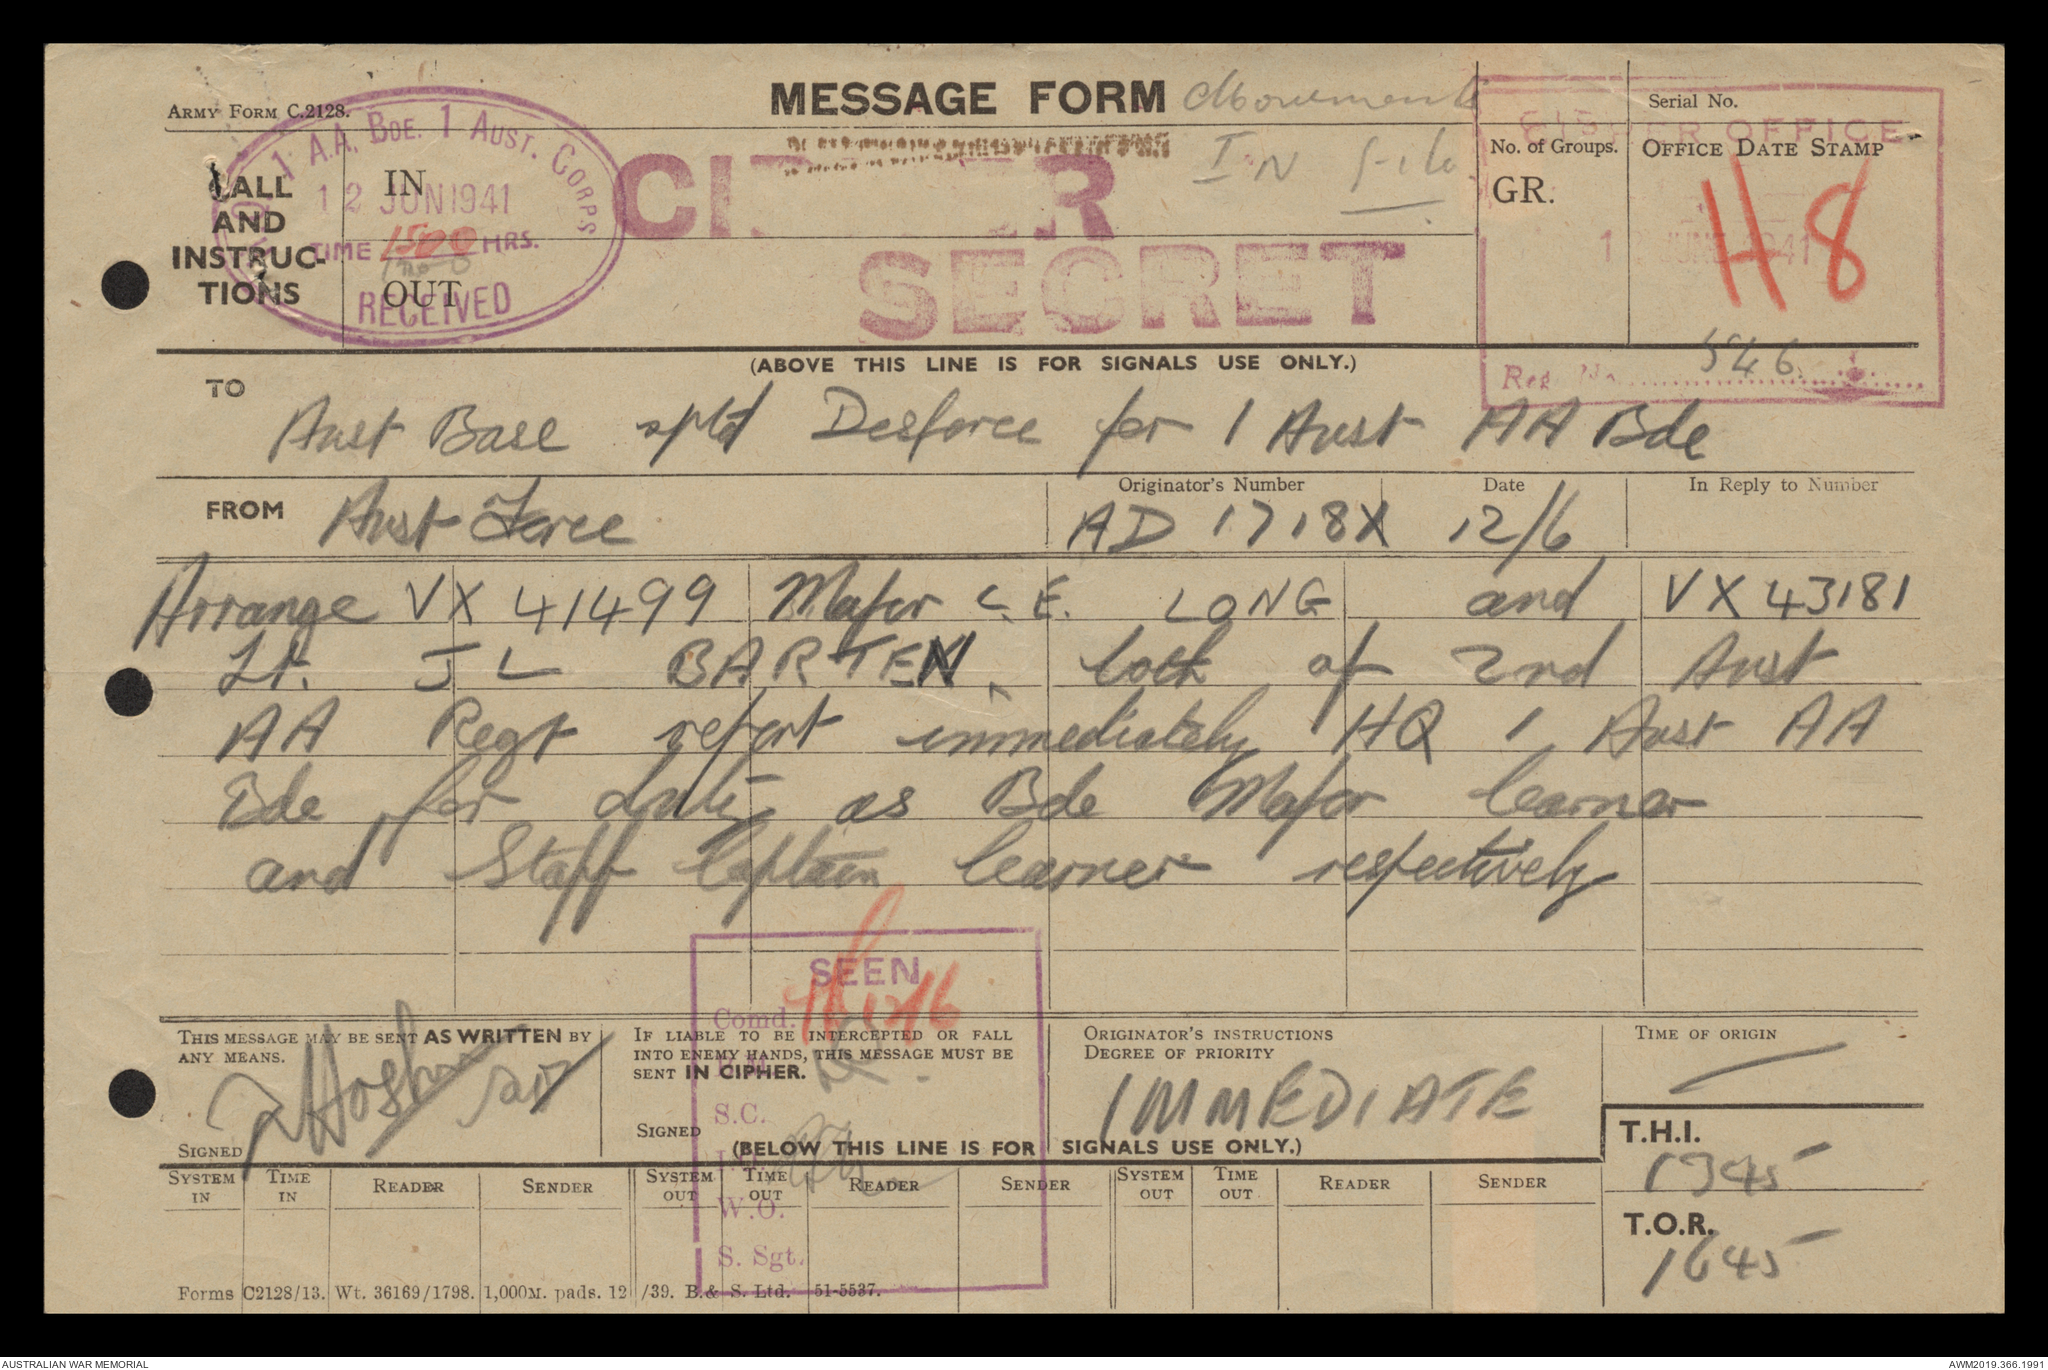 MESSAGE FORM
Army Form C.2128.
Serial No.
No. of Groups.
GR.
OFFICE DATE STAMP
CIPHER OFFICE
H8
JUN 1941
Reg. No. 546
1 A.A. BDE. 1 AUST. CORPS
12 JUN 1941
TIME 1500 HRS.
RECEIVED
CALL
AND
INSTRUC-
TIONS
IN
OUT
CIPHER
SECRET
IN file
(ABOVE THIS LINE IS FOR SIGNALS USE ONLY.)
TO
Aust Base rptd Desforce for 1 Aust AA Bde
FROM Aust Force
Originator's Number AD 1718X
Date 12/6
In Reply to Number
Arrange VX 41499 Major C.E. LONG and VX 43181
Lt. J L BARTEN both of 2nd Aust
AA Regt report immediately HQ 1 Aust AA
Bde for duty as Bde Major learner
and Staff Captain learner respectively
SEEN
Comd. 12/6
S.C.
W.O.
S. Sgt.
THIS MESSAGE MAY BE SENT AS WRITTEN BY
ANY MEANS.
SIGNED
IF LIABLE TO BE INTERCEPTED OR FALL
INTO ENEMY HANDS, THIS MESSAGE MUST BE
SENT IN CIPHER.
SIGNED
ORIGINATOR'S INSTRUCTIONS
DEGREE OF PRIORITY
IMMEDIATE
TIME OF ORIGIN
(BELOW THIS LINE IS FOR SIGNALS USE ONLY.)
T.H.I.
1345
T.O.R.
1645
SYSTEM IN TIME IN READER SENDER SYSTEM OUT TIME OUT READER SENDER SYSTEM OUT TIME OUT READER SENDER
Forms C2128/13. Wt. 36169/1798. 1,000M. pads. 12/39. B.& S. Ltd. 51-5537.
AUSTRALIAN WAR MEMORIAL
AWM2019.366.1991